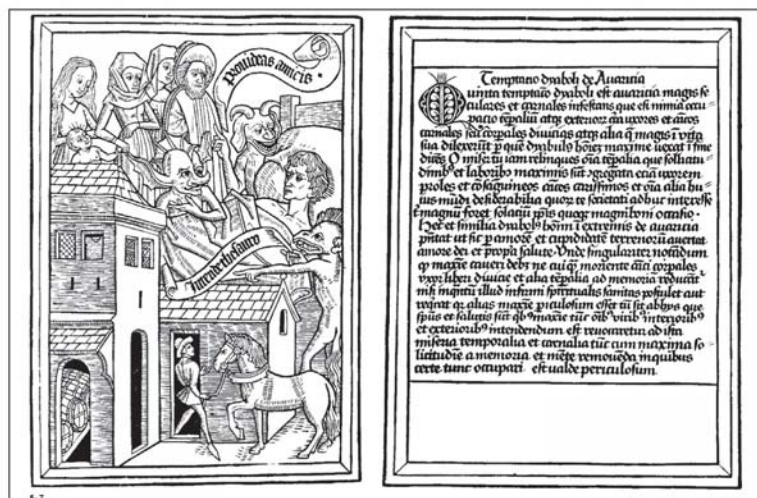 Prouideas amicis
Intende thesauro
Temptatio dyaboli de Auaricia
Quinta temptatio dyaboli est auaricia magis se
culares et carnales infestans que est nimia occu
patio tēpaliū atqꝫ exterior cīra uxores et amicos
carnales seu corpales diuicias atqꝫ alia q̄ magis ī vita
sua dilexerūt p̄ quē dyabulꝰ hoīeꝫ maxime uexat ī fine
dicēs O miser tu iam relinques oīa tēpalia que sollicitu
dinibꝫ et laboribꝫ maximis sūt gregata eciā uxorem
proles et cōsaguineos amicos carissimos et oīa alia hu
ius mūdi desiderabilia quorꝫ te societati adhuc interesse
magnū foret solaciū ip̄is quoqꝫ magni boni occasio
Hec et similia dyabolꝰ homī ī extremis de auaricia
p̄ntat ut sic p amorē et cupiditatē terrenorū auertat
amore dei et propa salute. Vnde singulariter notādum
qꝫ maxie caueri debꝫ ne cui qꝫ moriente amici corpales
vxor liberi diuicie et alia tēpalia ad memoriā reducātʳ
nisi inqntū illud infirmi spiritualis sanitas postulet aut
reqrat qꝛ alias maxīe piculosum esset cū sic ab hijs que
spūs et salutis sūt qbꝫ maxīe tūc oībꝫ viribꝫ interioribꝫ
et exterioribꝫ intendendum est reuocaretur ad ista
miseria temporalia et carnalia tūc cum maxima so
licitudīe a memoria et mēte remouēda in quibus
certe tunc occupari est ualde periculosum